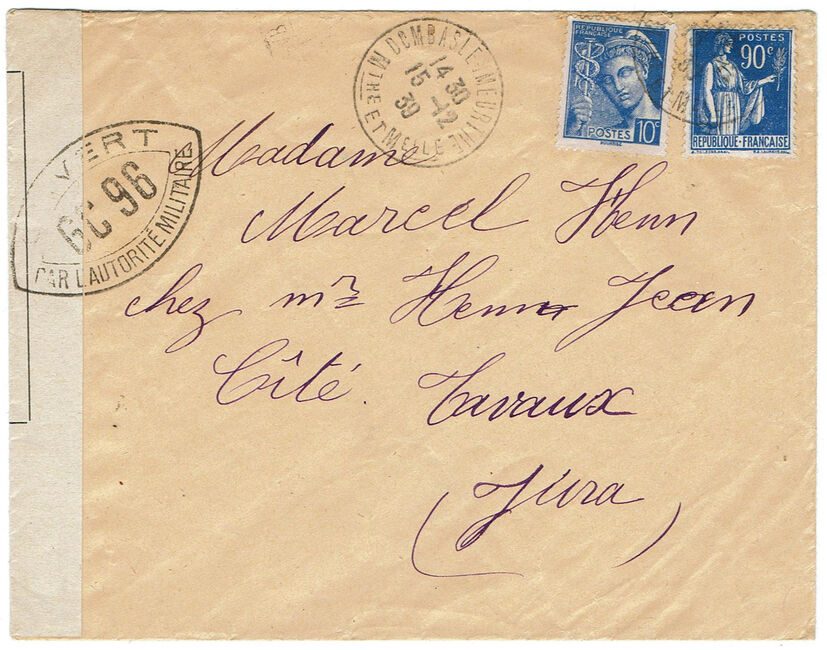 DOMBASLE-MEURTHE
14 30
15 -12
39
MTHE ET MELLE
REPUBLIQUE
FRANÇAISE
POSTES 10c
POSTES
90c
REPUBLIQUE-FRANÇAISE
VERT
GC 96
PAR L'AUTORITÉ MILITAIRE
Madame
Marcel Henn
chez mr Henn Jean
Cîté Tavaux
(Jura)